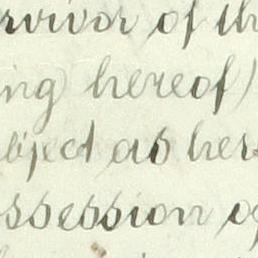 rvivor of th
ing hereof)
bject as her
ossession of